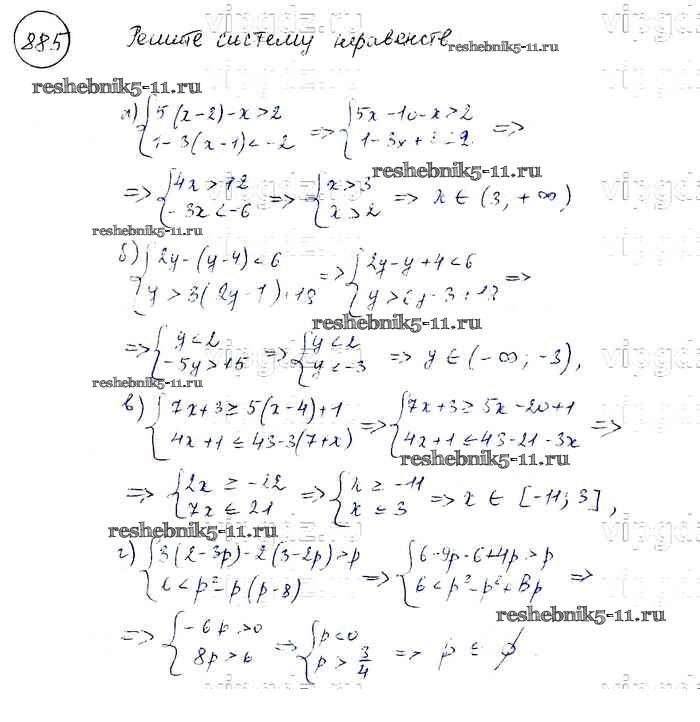 885 Решите систему неравенств
reshebnik5-11.ru
а) { 5(x-2)-x>2 ; 1-3(x-1)<-2 => { 5x-10-x>2 ; 1-3x+3 2 =>
reshebnik5-11.ru
=> { 4x>12 ; -3x<-6 => { x>3 ; x>2 => x ∈ (3, +∞)
reshebnik5-11.ru
б) { 2y-(y-4)<6 ; y>3(2y-1)+18 => { 2y-y+4<6 ; y>6y-3+18 =>
reshebnik5-11.ru
=> { y<2 ; -5y>15 => { y<2 ; y<-3 => y ∈ (-∞; -3),
reshebnik5-11.ru
в) { 7x+3≥5(x-4)+1 ; 4x+1≤43-3(7+x) => { 7x+3≥5x-20+1 ; 4x+1≤43-21-3x =>
reshebnik5-11.ru
=> { 2x≥-22 ; 7x≤21 => { x≥-11 ; x≤3 => x ∈ [-11; 3],
reshebnik5-11.ru
г) { 3(2-3p)-2(3-2p)>p ; 6<p²-p(p-8) => { 6-9p-6+4p>p ; 6<p²-p²+8p =>
reshebnik5-11.ru
=> { -6p>0 ; 8p>6 => { p<0 ; p>3/4 => p ∈ ∅.